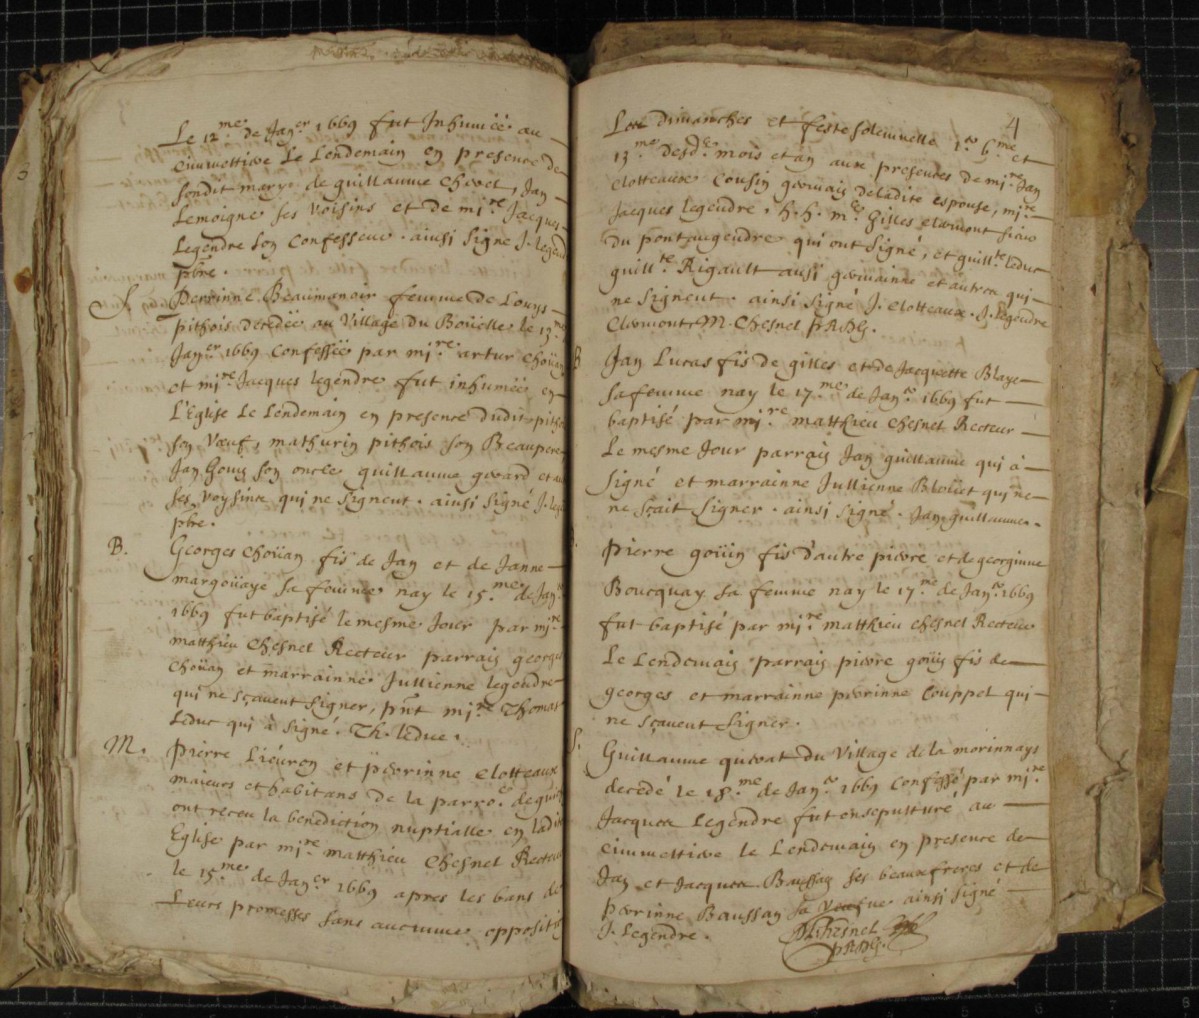 Le 12.me de Jan.er 1669 fut Inhumée au
cimmettiere Le Lendemain en presence de
sondit mary, de guillaume chevet, Jan
Lemoigne ses voisins et de mi.re Jacques
Legendre son confesseur. ainsi signé J. legend
pbre.
S. Perrinne Beaumanoir femme de Louys
pithois decedée au Village du Boüelle le 13.me
Jan.er 1669 confessée par mi.re artur choüan
et mi.re Jacques legendre fut inhumée en
L'Eglise Le Lendemain en presence dudit pitho
son Vœuf, mathurin pithois son Beaupere,
Jan Gouin son oncle guillaume gerard et au
ses voysins qui ne signent. ainsi signé J. lege
pbre.
B. Georges choüan fis de Jan et de Janne
margoüaye sa femme nay le 15.me de Jan.er
1669 fut baptisé le mesme Jour par mi.re
matthieu Chesnel Recteur parrain george
choüan et marrainne Jullienne legendre
qui ne sçavent signer, pnt mi.re Thomas
Leduc qui à signé. Th. leduc.
M. Pierre Liévron et perrinne clotteaux
maieurs et habitans de la parro.e de
ont receu la benediction nuptialle en ladi
Eglise par mi.re matthieu Chesnel Recteu
le 15.me de Jan.er 1669 apres les bans de
Leurs promesses sans aucunne oppositio
4
dimanches et feste solemnelle 1.er 6.me et
13.me desd. mois et an aux presences de mi.re Jan
clotteaux cousin germain de ladite espouse, mi.re
Jacques legendre, h.h. m. Gilles clermont sieur
du pontaugendre qui ont signé, et guill.e leduc
guill.e Rigault aussi germainne et autres qui
ne signent. ainsi signé J. clotteaux. J. legendre
Clermont, M. Chesnel
B Jan Lucas fis de gilles et de Jacquette Blaye
sa femme nay le 17.me de Jan.er 1669 fut
baptisé par mi.re matthieu chesnel Recteur
Le mesme Jour parrain Jan guillaume qui à
signé et marrainne Jullienne Bloüet qui ne
ne sçait signer. ainsi signé. Jan guillaume.
Pierre goüin fis d'autre pierre et de georginne
Boucquay sa femme nay le 17.me de Jan.er 1669
fut baptisé par mi.re matthieu chesnel Recteur
Le Lendemain parrain pierre goüin fis de
georges et marrainne perrinne Couppel qui
ne sçavent signer.
S. Guillaume querat du Village de la morinnays
decedé le 18.me de Jan.er 1669 confessé par mi.re
Jacques Legendre fut ensepulturé au
cimmettiere le Lendemain en presence de
Jan et Jacques Baussan ses beaux freres et de
perrinne Baussan sa veufve ainsi signé
J. Legendre. M. Chesnel